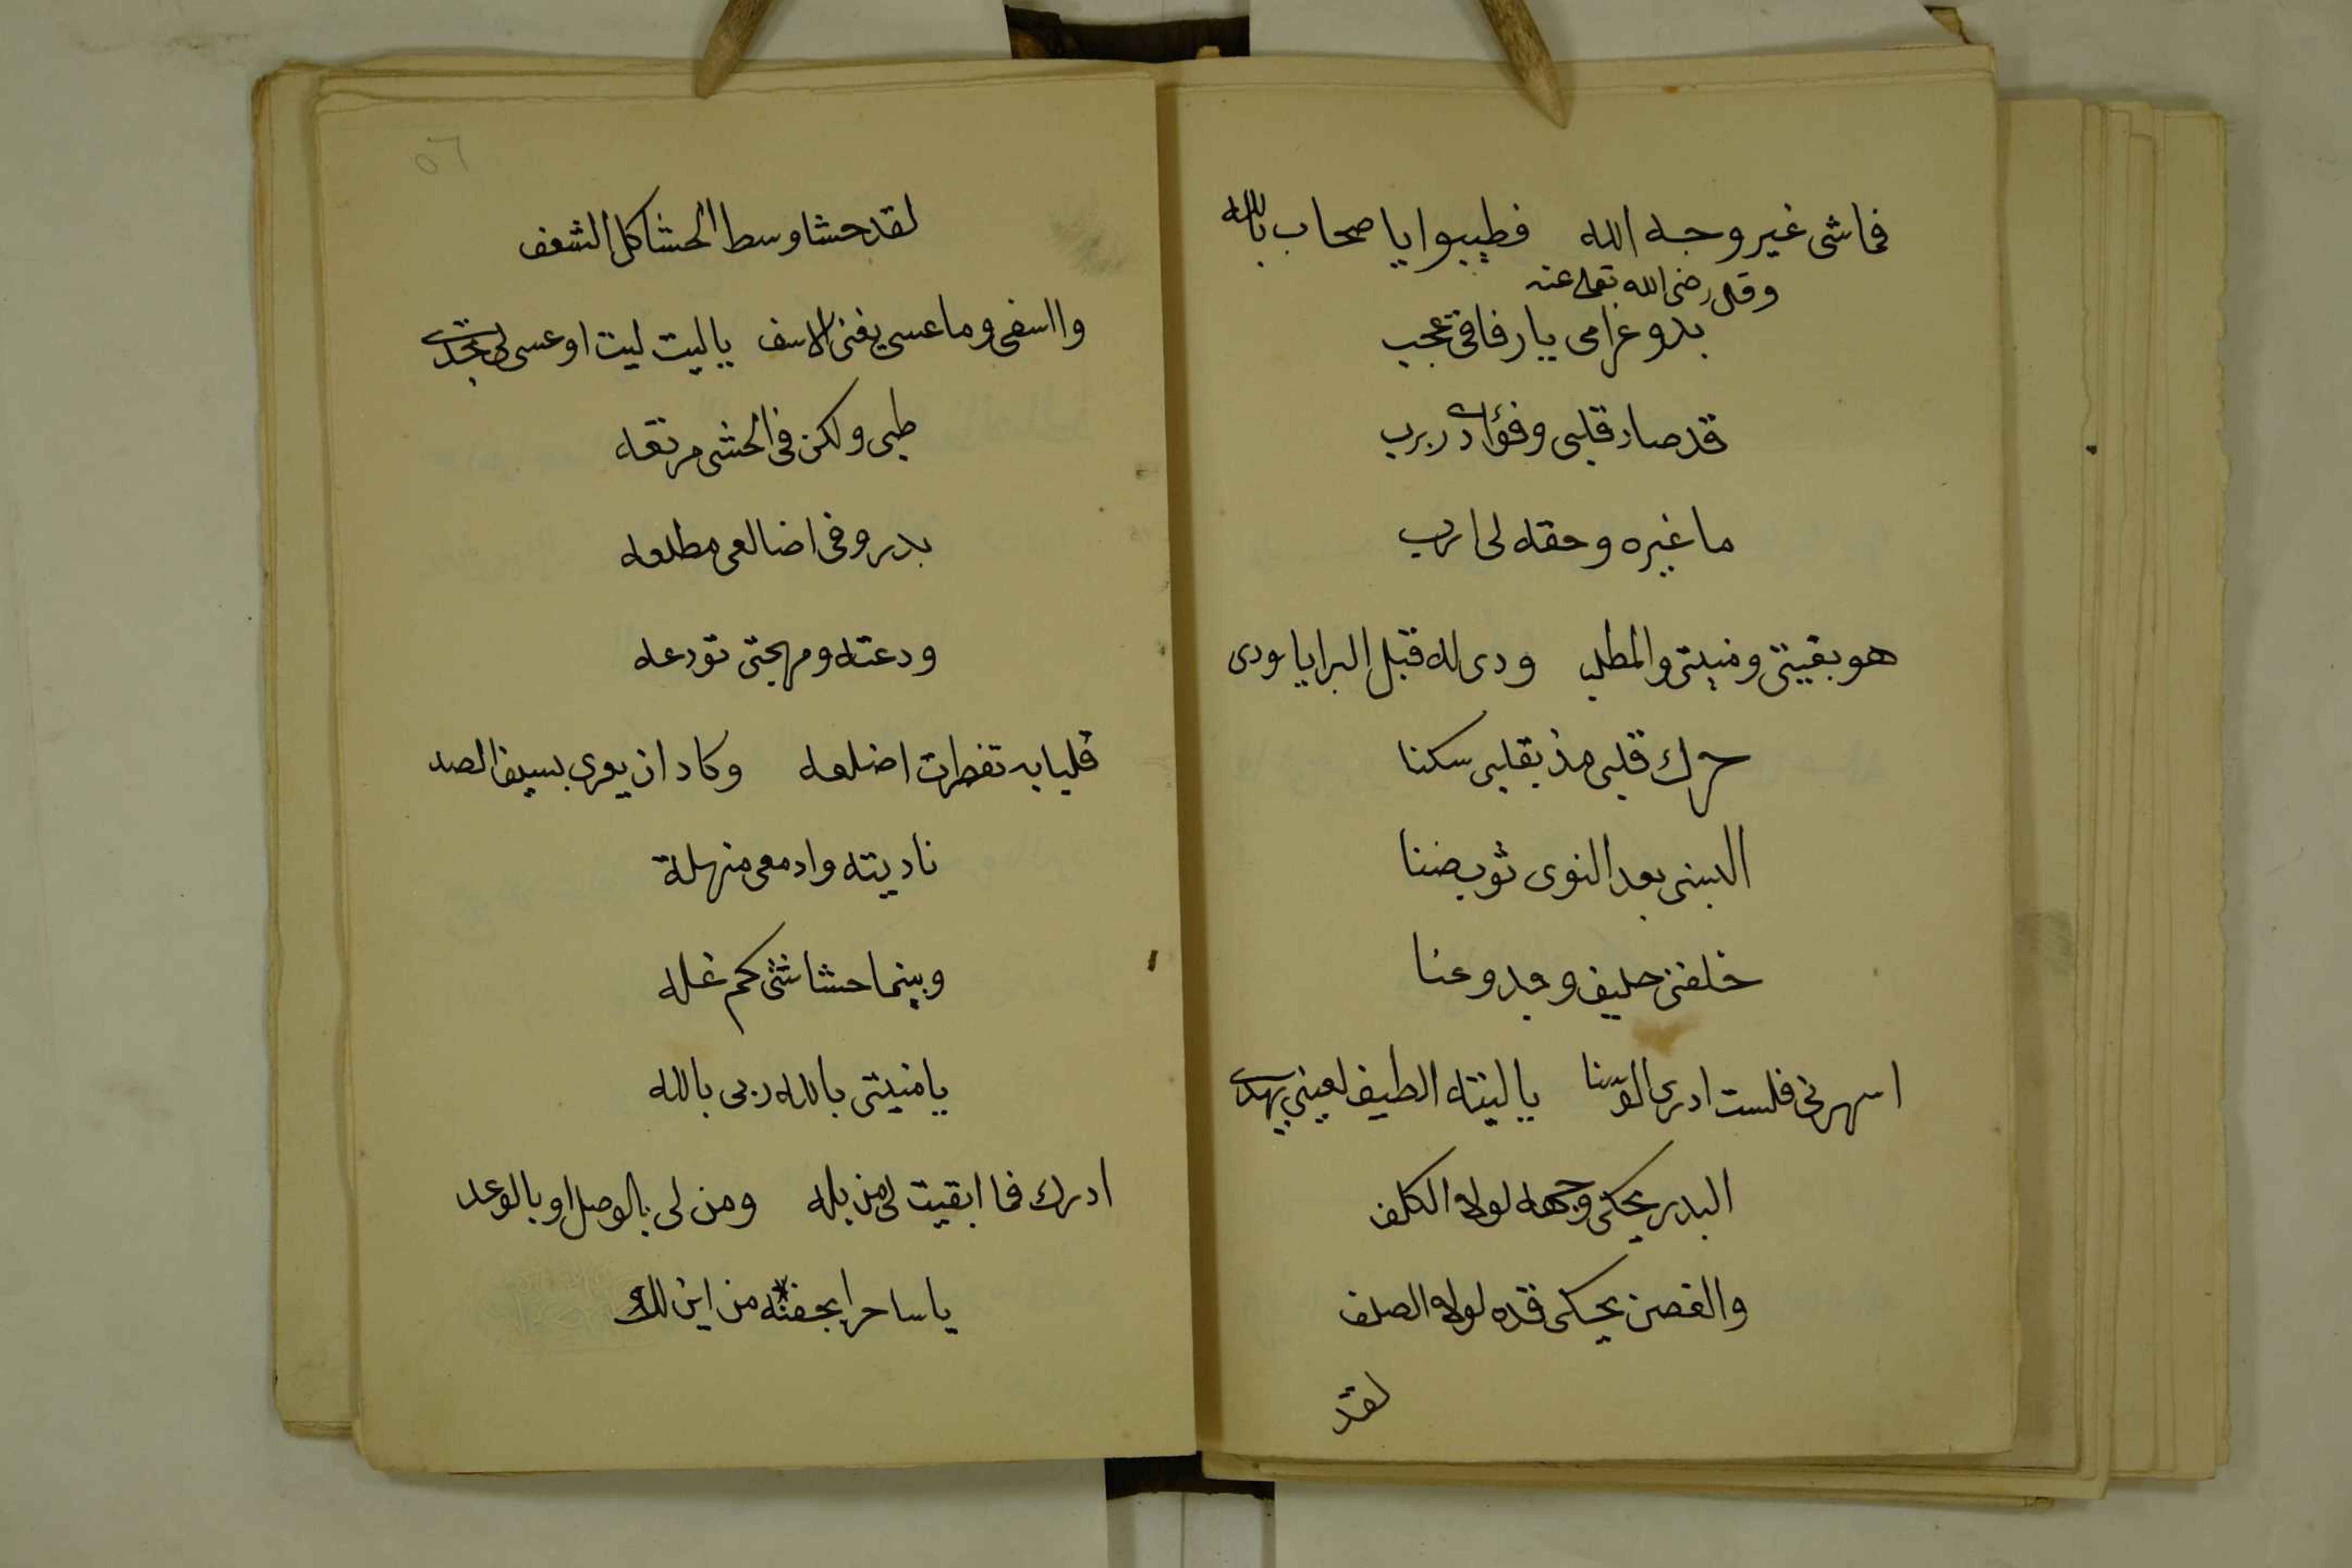 فماشى غير وجه الله فطيبوا يا صحاب بالله
وقال رضى الله تعالى عنه
بدو غرامى يا رفاقى عجب
قد صار قلبى وفؤادى ربرب
ما غيره وحقه لى ارب
هو بغيتى ومنيتى والمطلب ودى له قبل البرايا ودى
حرك قلبى مذ بقلبى سكنا
البسنى بعد النوى ثوب ضنا
خلفنى حليف وجد وعنا
اسهرنى فلست ادرى الوسنا يا ليته الطيف لعينى يهدى
البدر يحكى وجهه لولا الكلف
والغصن يحكى قده لولا الصلف
لقد
٥٦
لقد حشا وسط الحشا كل الشغف
وااسفى وما عسى يغنى الاسف يا ليت ليت او عسى لى تجدى
ظبى ولكن فى الحشى مرتعه
بدر وفى اضالعى مطلعه
ودعته ومهجتى تودعه
قلبا به تفطرت اضلعه وكاد ان يعرى بسيف الصد
ناديته وادمعى منهلة
وبينما حشاشتى كم غله
يا منيتى بالله ربى بالله
ادرك فما ابقيت لى من بله ومن لى بالوصل او بالوعد
يا ساحرا بجفنه من اين لك